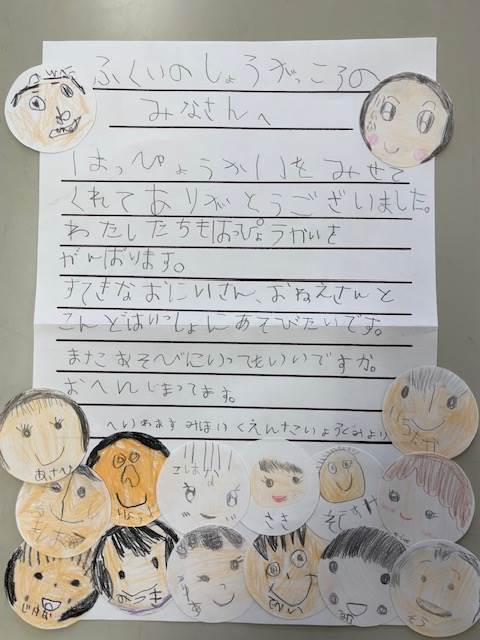 ふくいのしょうがっころの
みなさんへ
はっぴょうかいをみせて
くれてありがとうございました。
わたしたちもはっぴょうかいを
がんばります。
すてきなおにいさん、おねえさんと
こんどはいっしょにあそびたいです。
またあそびにいってもいいですか。
おへんじまってます。
へいわあすみほいくえんたいようぐみより
あさひ
さき
そうすけ
みつき
りあ
めい
そら